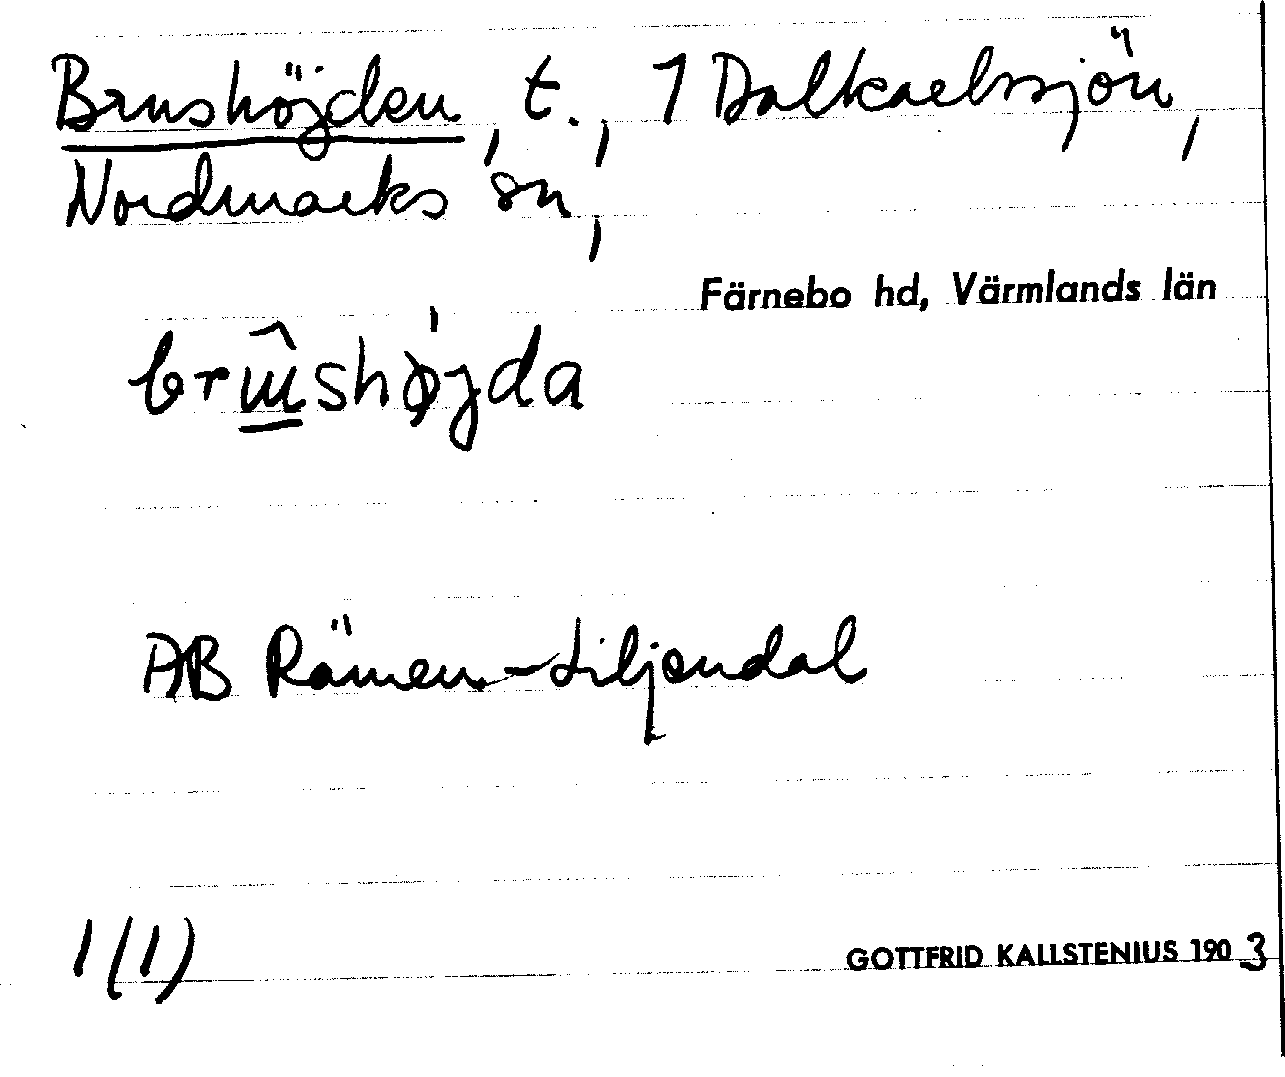 Brushöjden, t., 1 Dalkarlssjön,
Nordmarks sn,
Färnebo hd, Värmlands län
AB Rämen-Liljendal
1(1)
GOTTFRID KALLSTENIUS 1903